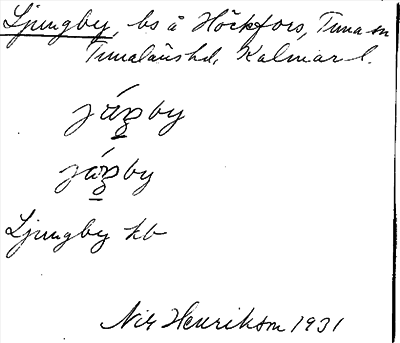 Ljungby, bs å Höckfors, Tuna sn
Tunaläns hd, Kalmar l.
Ljungby kb
Nils Henrikson 1931